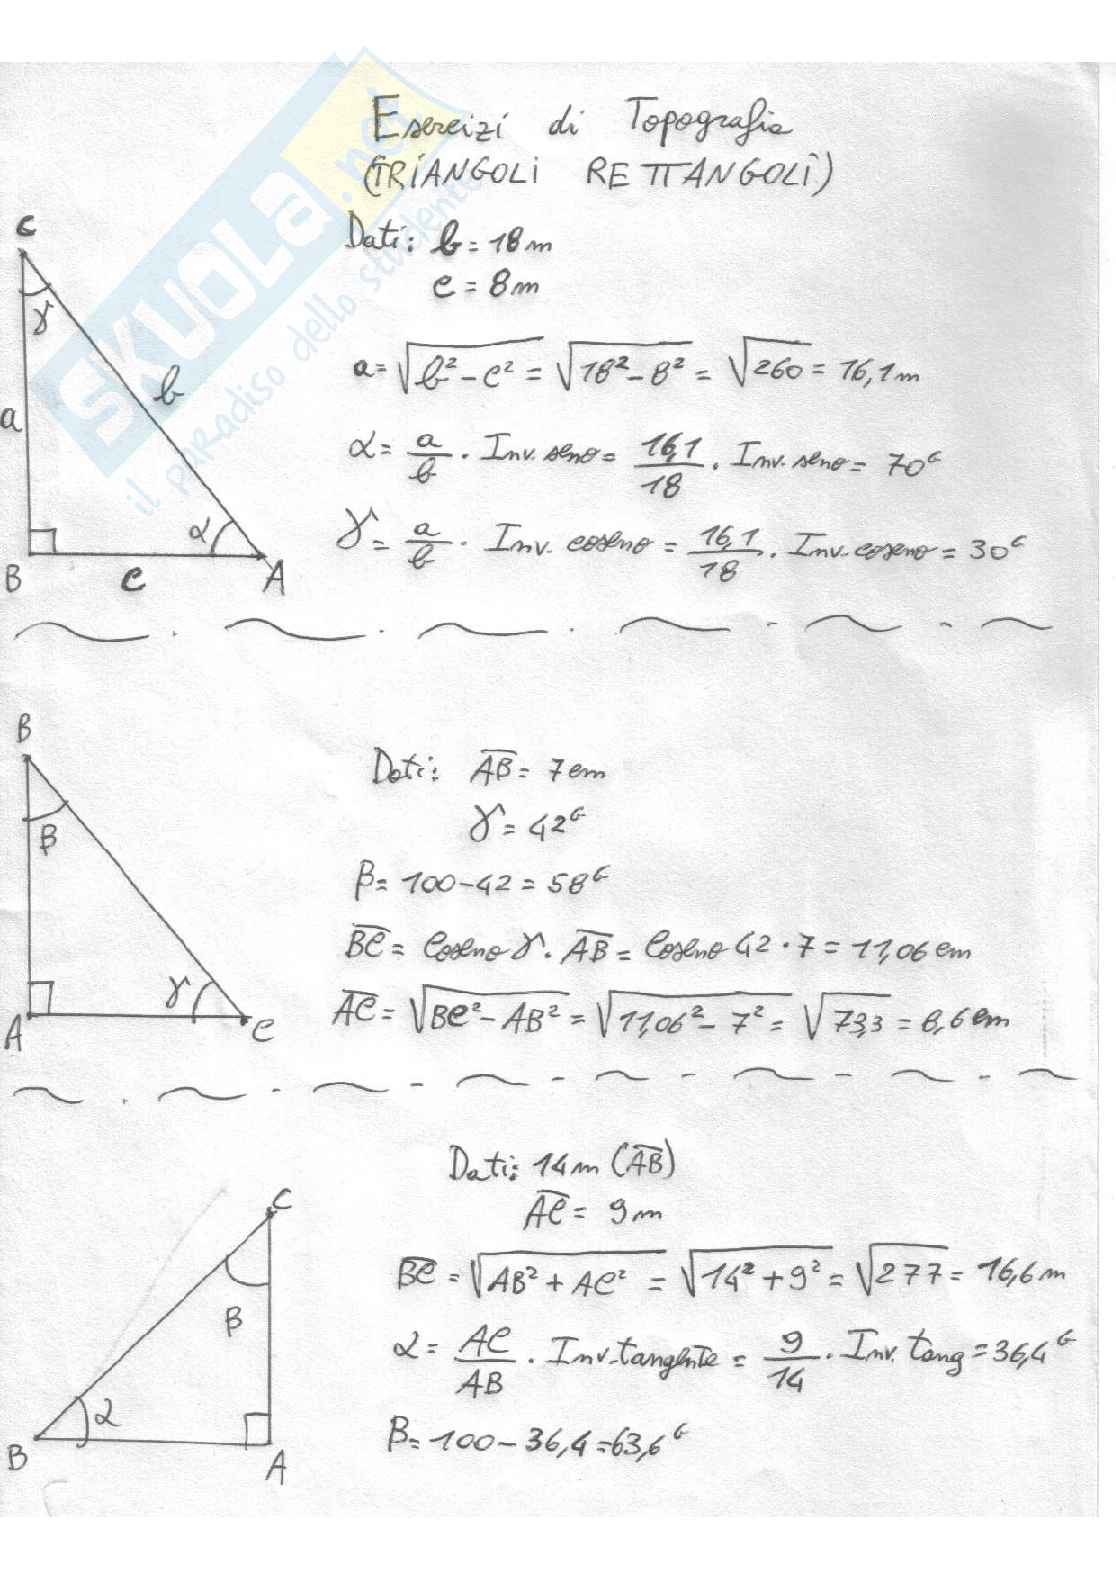 Esercizi di Topografia
(TRIANGOLI RETTANGOLI)
SKUOLA.net
il paradiso dello studente
Dati: b = 18 m
c = 8 m
C
γ
a
b
α
B
c
A
a = √b² - c² = √18² - 8² = √260 = 16,1 m
α = a/b · Inv. seno = 16,1/18 · Inv. seno = 70ᴳ
γ = a/b · Inv. coseno = 16,1/18 · Inv. coseno = 30ᴳ
B
β
γ
A
C
Dati: AB = 7 cm
γ = 42ᴳ
β = 100 - 42 = 58ᴳ
BC = Coseno γ · AB = Coseno 42 · 7 = 11,06 cm
AC = √BC² - AB² = √11,06² - 7² = √73,3 = 8,6 cm
C
β
α
B
A
Dati: 14 m (AB)
AC = 9 m
BC = √AB² + AC² = √14² + 9² = √277 = 16,6 m
α = AC/AB · Inv. tangente = 9/14 · Inv. tang = 36,4ᴳ
β = 100 - 36,4 = 63,6ᴳ